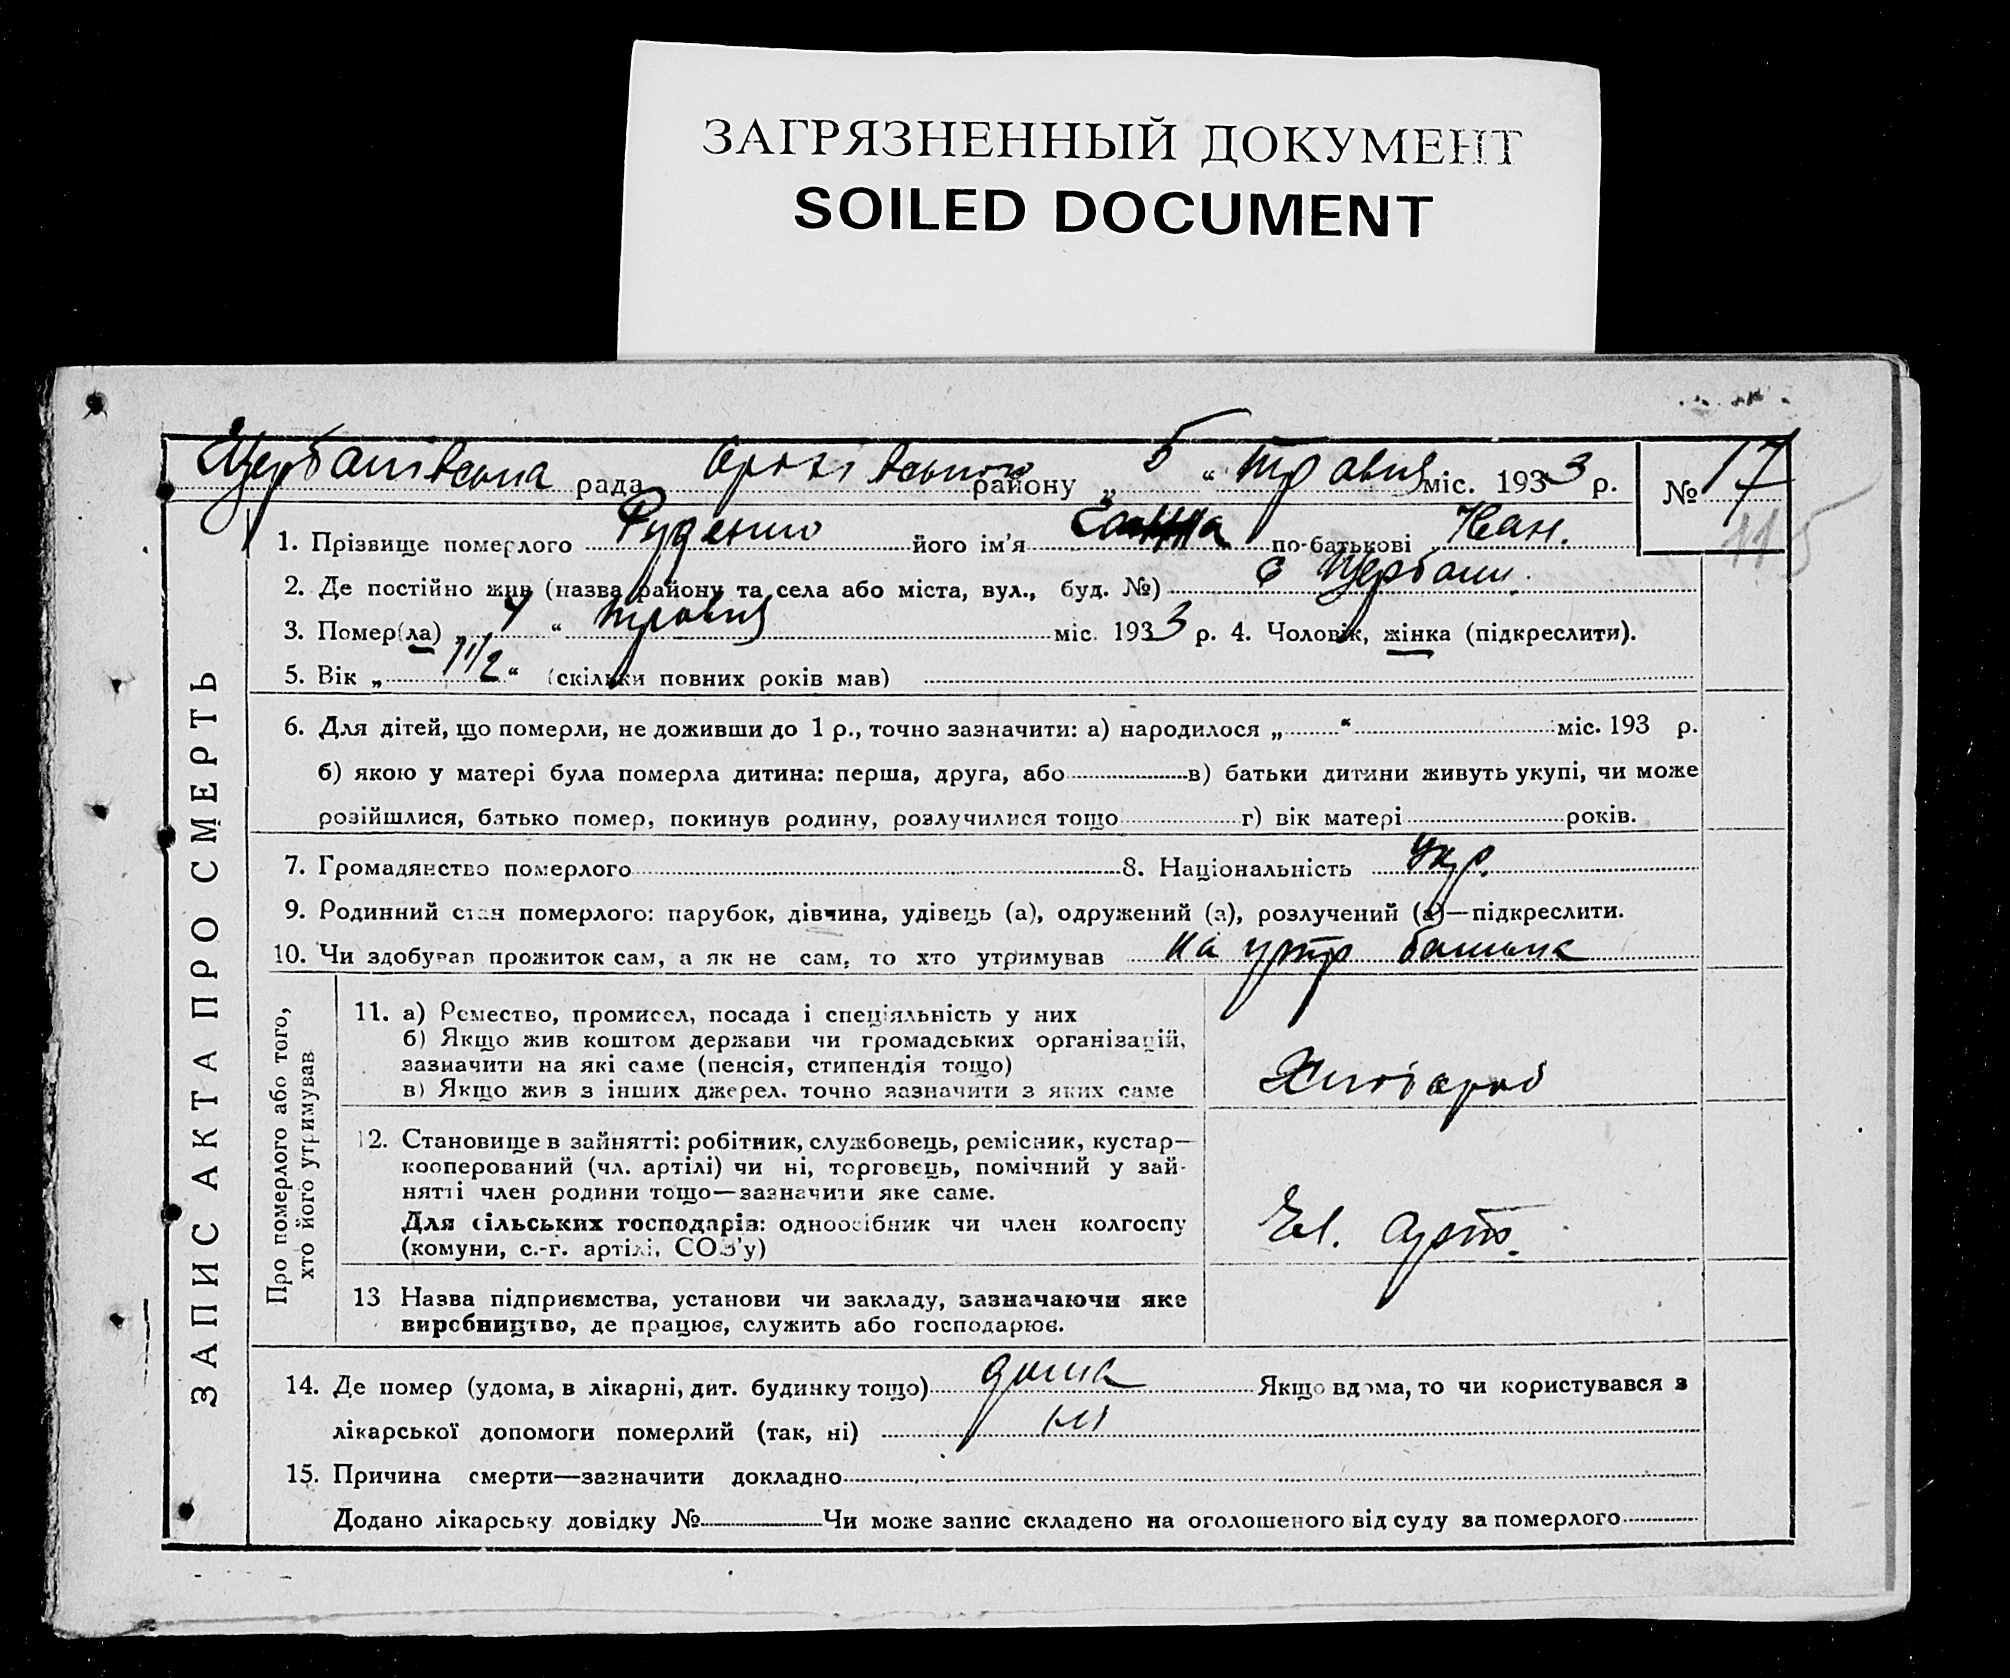 ЗАГРЯЗНЕННЫЙ ДОКУМЕНТ
SOILED DOCUMENT
Щербанівська рада району „5“ травня міс. 1933 р. № 17
115
1. Прізвище померлого Руденко його ім’я по-батькові Иван.
2. Де постійно жив (назва району та села або міста, вул., буд. №) с Щербани.
3. Помер(ла) „4“ травня міс. 1933 р. 4. Чоловік, жінка (підкреслити).
5. Вік „1 1/2“ (скільки повних років мав)
6. Для дітей, що померли, не доживши до 1 р., точно зазначити: а) народилося „ “ міс. 193 р.
б) якою у матері була померла дитина: перша, друга, або в) батьки дитини живуть укупі, чи може
розійшлися, батько помер, покинув родину, розлучилися тощо г) вік матері років.
7. Громадянство померлого 8. Національність Укр.
9. Родинний стан померлого: парубок, дівчина, удівець (а), одружений (а), розлучений (а)—підкреслити.
10. Чи здобував прожиток сам, а як не сам, то хто утримував на утр батька
ЗАПИС АКТА ПРО СМЕРТЬ
Про померлого або того,
хто його утримував
11. а) Ремество, промисел, посада і спеціяльність у них
б) Якщо жив коштом держави чи громадських організацій,
зазначити на які саме (пенсія, стипендія тощо)
в) Якщо жив з інших джерел, точно зазначити з яких саме
Хлібороб
12. Становище в зайнятті: робітник, службовець, ремісник, кустар—
кооперований (чл. артілі) чи ні, торговець, помічний у зай-
нятті член родини тощо—зазначити яке саме.
Для сільських господарів: одноосібник чи член колгоспу
(комуни, с.-г. артілі, СОЗ’у)
арт.
13 Назва підприємства, установи чи закладу, зазначаючи яке
виробництво, де працює, служить або господарює.
14. Де помер (удома, в лікарні, дит. будинку тощо) дома Якщо вдома, то чи користувався з
лікарської допомоги померлий (так, ні) ні
15. Причина смерти—зазначити докладно
Додано лікарську довідку № Чи може запис складено на оголошеного від суду за померлого